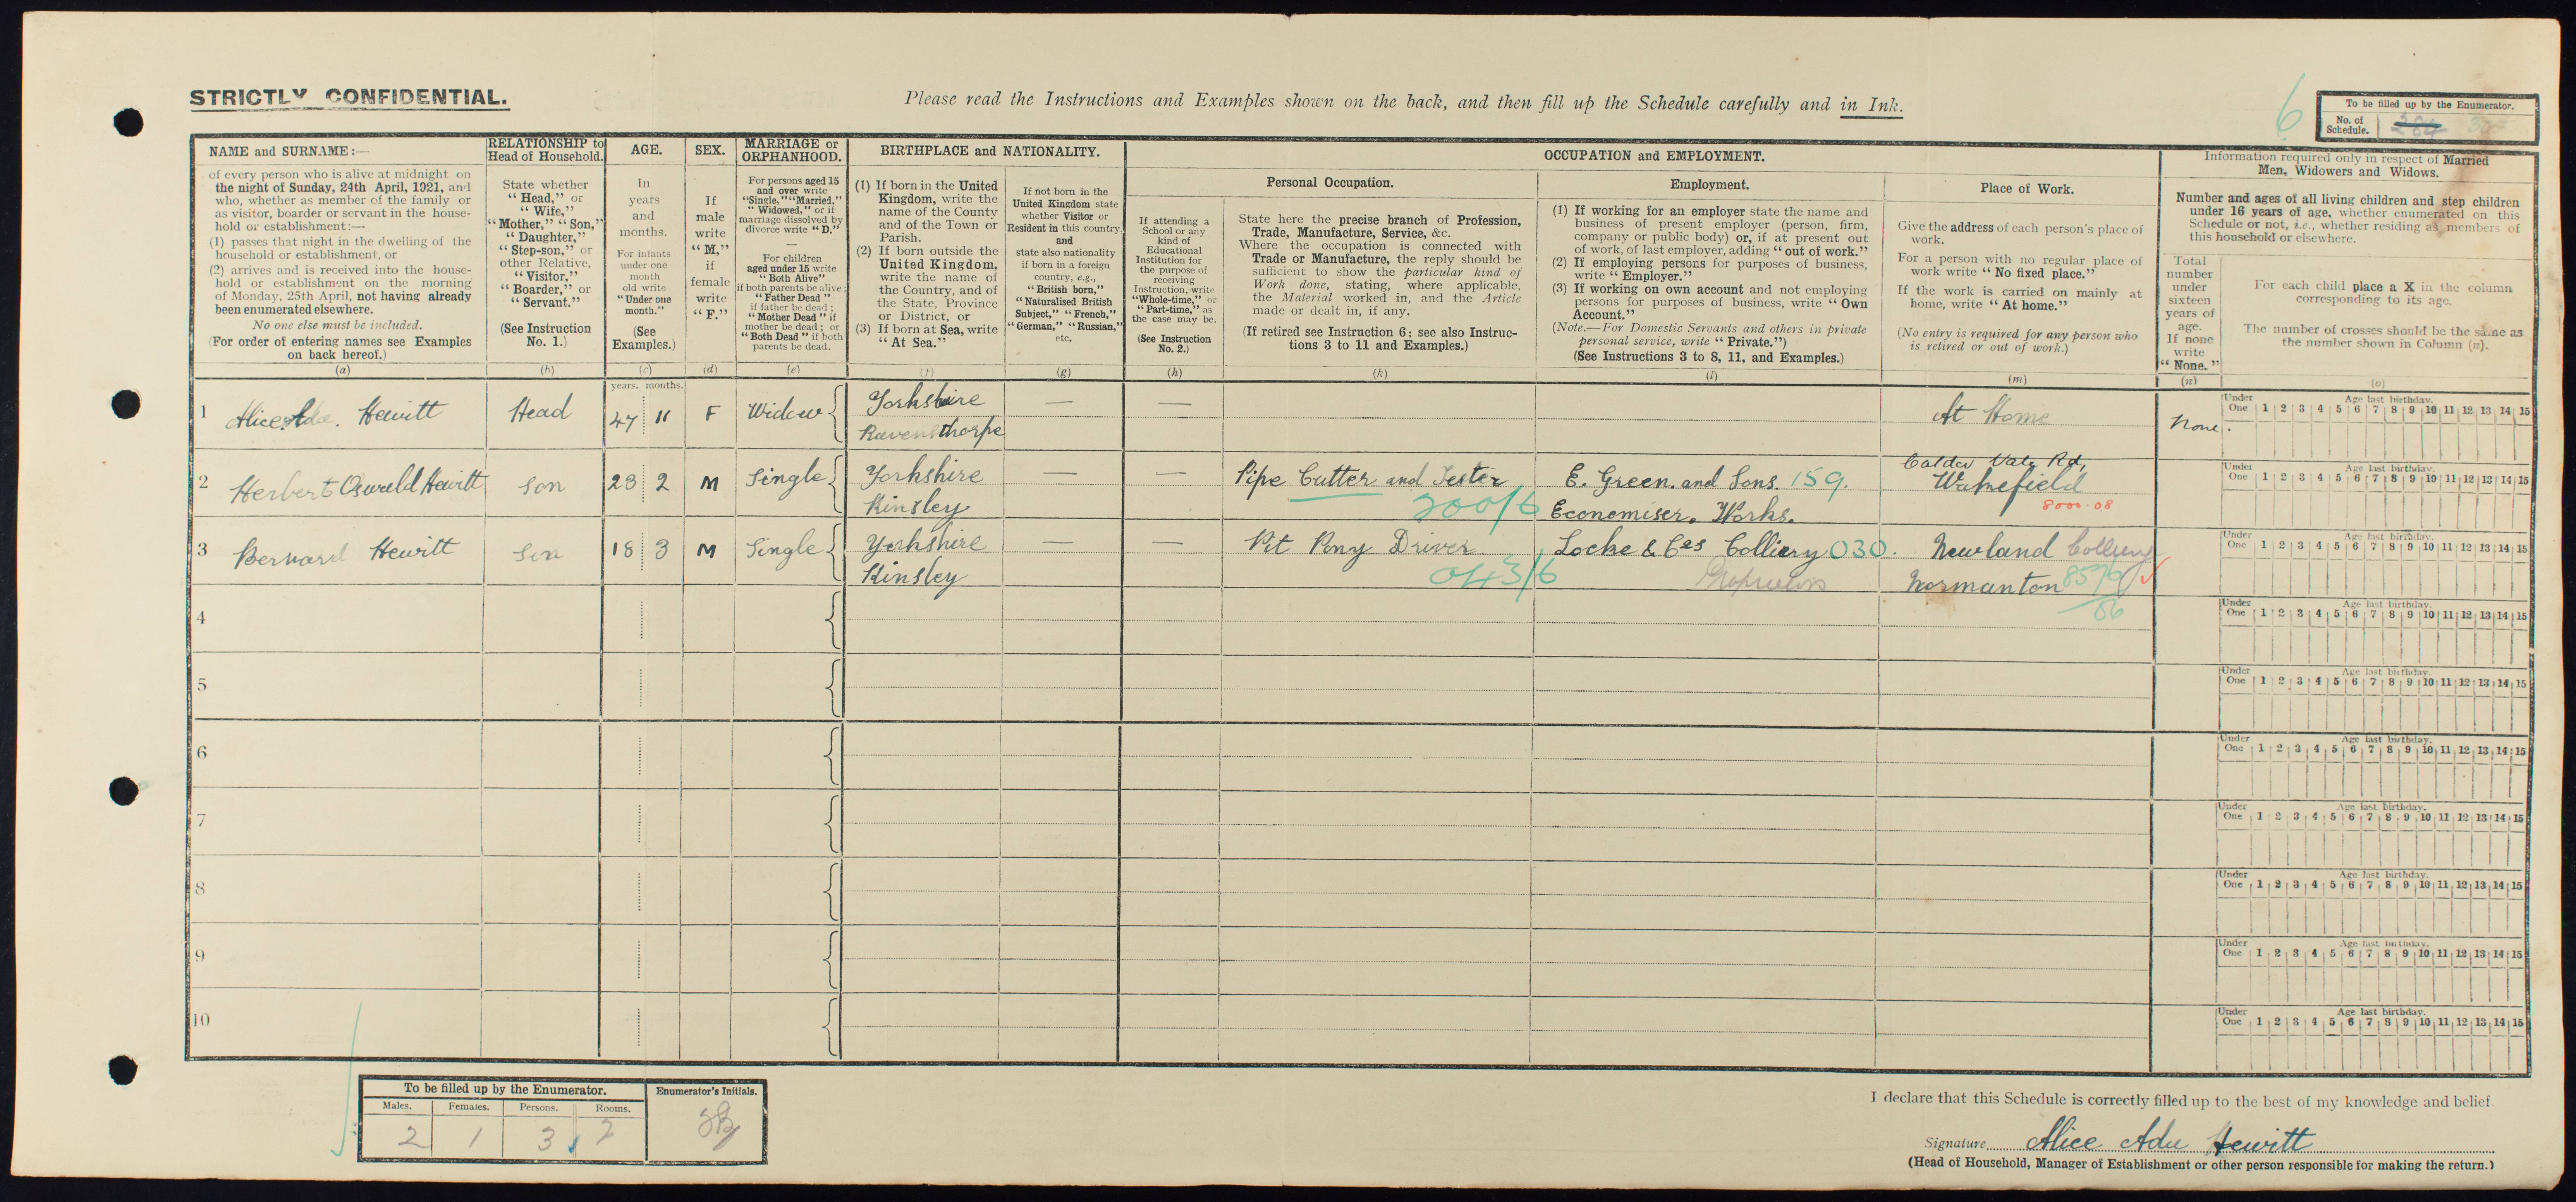 STRICTLY CONFIDENTIAL.
Please read the Instructions and Examples shown on the back, and then fill up the Schedule carefully and in Ink.
6
To be filled up by the Enumerator.
No. of Schedule. 284
NAME and SURNAME:—
of every person who is alive at midnight on
the night of Sunday, 24th April, 1921, and
who, whether as member of the family or
as visitor, boarder or servant in the house-
hold or establishment:—
(1) passes that night in the dwelling of the
household or establishment, or
(2) arrives and is received into the house-
hold or establishment on the morning
of Monday, 25th April, not having already
been enumerated elsewhere.
No one else must be included.
(For order of entering names see Examples
on back hereof.)
(a)
RELATIONSHIP to
Head of Household.
State whether
"Head," or
"Wife,"
"Mother," "Son,"
"Daughter,"
"Step-son," or
other Relative,
"Visitor,"
"Boarder," or
"Servant."
(See Instruction
No. 1.)
(b)
AGE.
In
years
and
months.
For infants
under one
month
old write
"Under one
month."
(See
Examples.)
(c)
SEX.
If
male
write
"M,"
if
female
write
"F."
(d)
MARRIAGE or
ORPHANHOOD.
For persons aged 15
and over write
"Single," "Married,"
"Widowed," or if
marriage dissolved by
divorce write "D."
—
For children
aged under 15 write
"Both Alive"
if both parents be alive;
"Father Dead"
if father be dead;
"Mother Dead" if
mother be dead; or
"Both Dead" if both
parents be dead.
(e)
BIRTHPLACE and NATIONALITY.
(1) If born in the United
Kingdom, write the
name of the County
and of the Town or
Parish.
(2) If born outside the
United Kingdom,
write the name of
the Country, and of
the State, Province
or District, or
(3) If born at Sea, write
"At Sea."
(f)
If not born in the
United Kingdom state
whether Visitor or
Resident in this country,
and
state also nationality
if born in a foreign
country, e.g.,
"British born,"
"Naturalised British
Subject," "French,"
"German," "Russian,"
etc.
(g)
OCCUPATION and EMPLOYMENT.
If attending a
School or any
kind of
Educational
Institution for
the purpose of
receiving
Instruction, write
"Whole-time," or
"Part-time," as
the case may be.
(See Instruction
No. 2.)
(h)
Personal Occupation.
State here the precise branch of Profession,
Trade, Manufacture, Service, &c.
Where the occupation is connected with
Trade or Manufacture, the reply should be
sufficient to show the particular kind of
Work done, stating, where applicable,
the Material worked in, and the Article
made or dealt in, if any.
(If retired see Instruction 6; see also Instruc-
tions 3 to 11 and Examples.)
(k)
Employment.
(1) If working for an employer state the name and
business of present employer (person, firm,
company or public body) or, if at present out
of work, of last employer, adding "out of work."
(2) If employing persons for purposes of business,
write "Employer."
(3) If working on own account and not employing
persons for purposes of business, write "Own
Account."
(Note.—For Domestic Servants and others in private
personal service, write "Private.")
(See Instructions 3 to 8, 11, and Examples.)
(l)
Place of Work.
Give the address of each person's place of
work.
For a person with no regular place of
work write "No fixed place."
If the work is carried on mainly at
home, write "At home."
(No entry is required for any person who
is retired or out of work.)
(m)
Information required only in respect of Married
Men, Widowers and Widows.
Number and ages of all living children and step children
under 16 years of age, whether enumerated on this
Schedule or not, i.e., whether residing as members of
this household or elsewhere.
Total
number
under
sixteen
years of
age.
If none
write
"None."
(n)
For each child place a X in the column
corresponding to its age.
The number of crosses should be the same as
the number shown in Column (n).
(o)
years. months.
1 Alice Ada. Hewitt Head 47 11 F Widow Yorkshire — — At Home None.
Ravensthorpe
Under One Age last birthday. 1 2 3 4 5 6 7 8 9 10 11 12 13 14 15
2 Herbert Oswald Hewitt Son 23 2 M Single Yorkshire — — Pipe Cutter and Tester E. Green. and Sons. 159. Calder Vale Rd, Wakefield
Kinsley 200/6 Economiser. Works. 8000.08
Under One Age last birthday. 1 2 3 4 5 6 7 8 9 10 11 12 13 14 15
3 Bernard Hewitt Son 18 3 M Single Yorkshire — — Pit Pony Driver Locke & Cos Colliery 030. Newland Colliery
Kinsley 043/6 Normanton
Under One Age last birthday. 1 2 3 4 5 6 7 8 9 10 11 12 13 14 15
4
Under One Age last birthday. 1 2 3 4 5 6 7 8 9 10 11 12 13 14 15
5
Under One Age last birthday. 1 2 3 4 5 6 7 8 9 10 11 12 13 14 15
6
Under One Age last birthday. 1 2 3 4 5 6 7 8 9 10 11 12 13 14 15
7
Under One Age last birthday. 1 2 3 4 5 6 7 8 9 10 11 12 13 14 15
8
Under One Age last birthday. 1 2 3 4 5 6 7 8 9 10 11 12 13 14 15
9
Under One Age last birthday. 1 2 3 4 5 6 7 8 9 10 11 12 13 14 15
10
Under One Age last birthday. 1 2 3 4 5 6 7 8 9 10 11 12 13 14 15
To be filled up by the Enumerator.
Males. Females. Persons. Rooms.
2 1 3
Enumerator's Initials.
I declare that this Schedule is correctly filled up to the best of my knowledge and belief.
Signature Alice Ada Hewitt
(Head of Household, Manager of Establishment or other person responsible for making the return.)